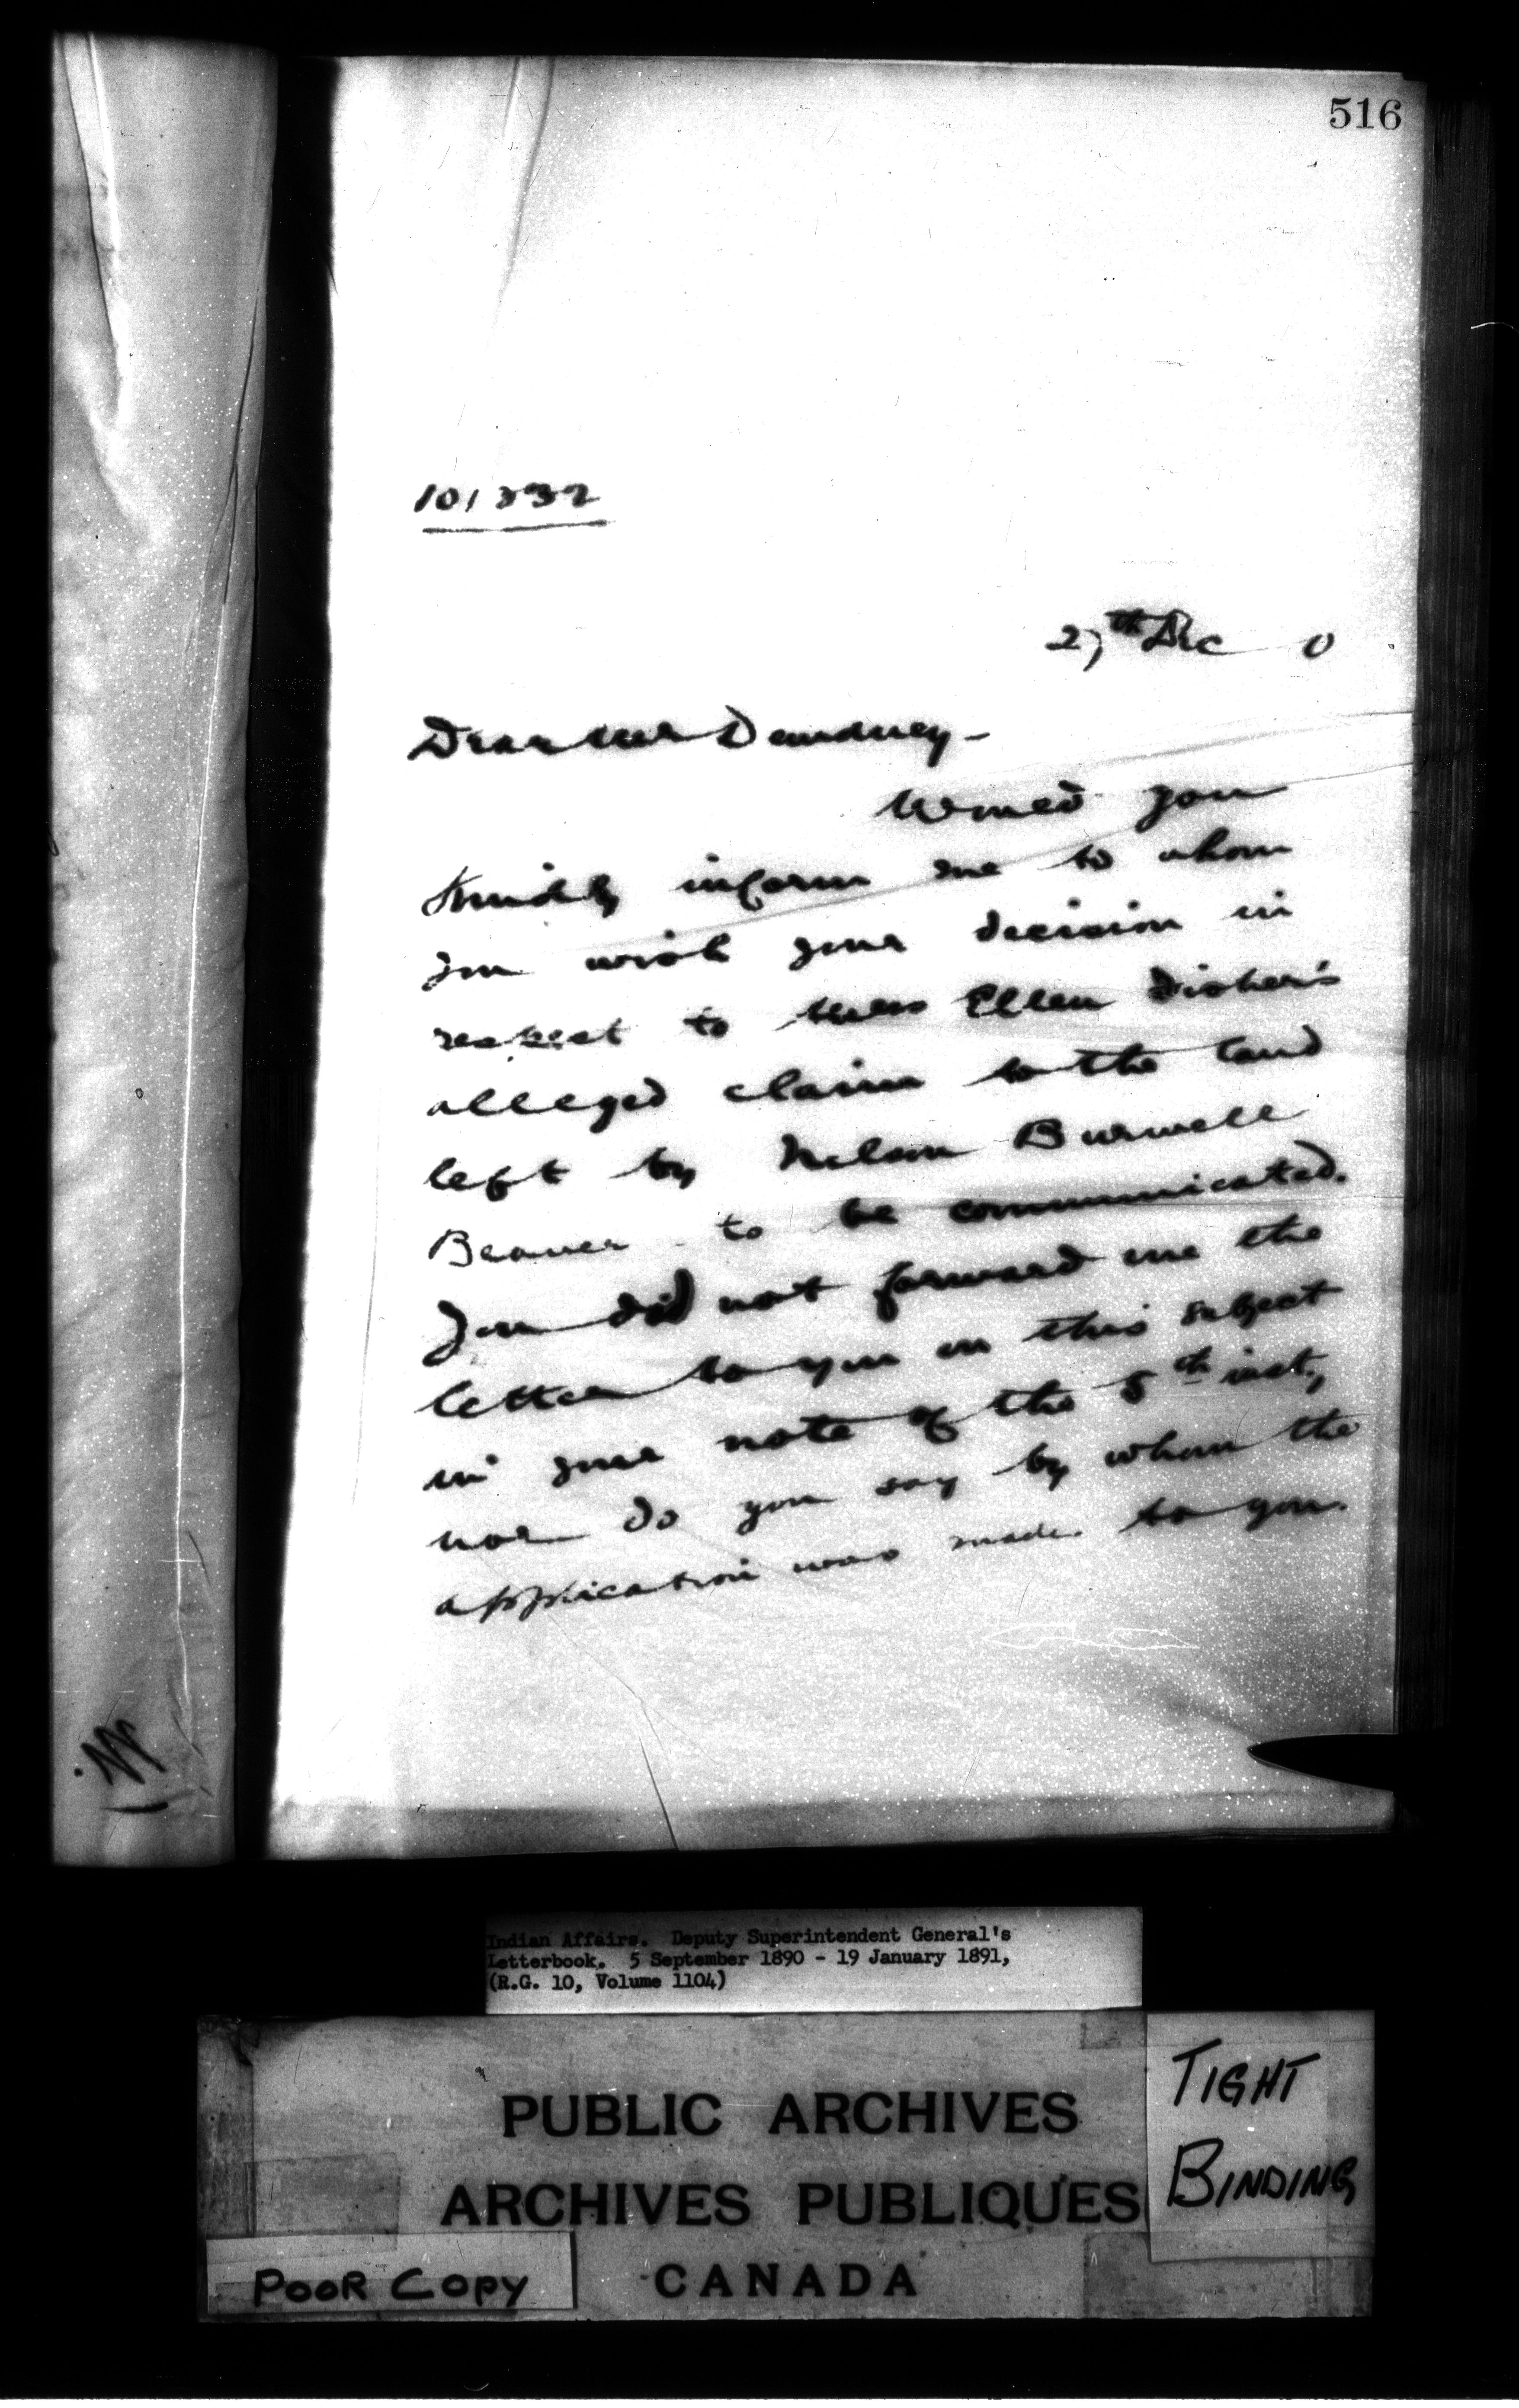 516
101332
27th Dec 0
Dear Mr Dewdney -
Would you
kindly inform me to whom
you wish your decision in
respect to Miss Ellen Fisher's
alleged claim to the land
left by Nelson Burwell
Beaver to be communicated.
You did not forward me the
letter to you on this subject
in your note of the 5th inst,
nor do you say by whom the
application was made to you.
Indian Affairs. Deputy Superintendent General's
Letterbook. 5 September 1890 - 19 January 1891,
(R.G. 10, Volume 1104)
PUBLIC ARCHIVES
ARCHIVES PUBLIQUES
CANADA
TIGHT
BINDING
POOR COPY